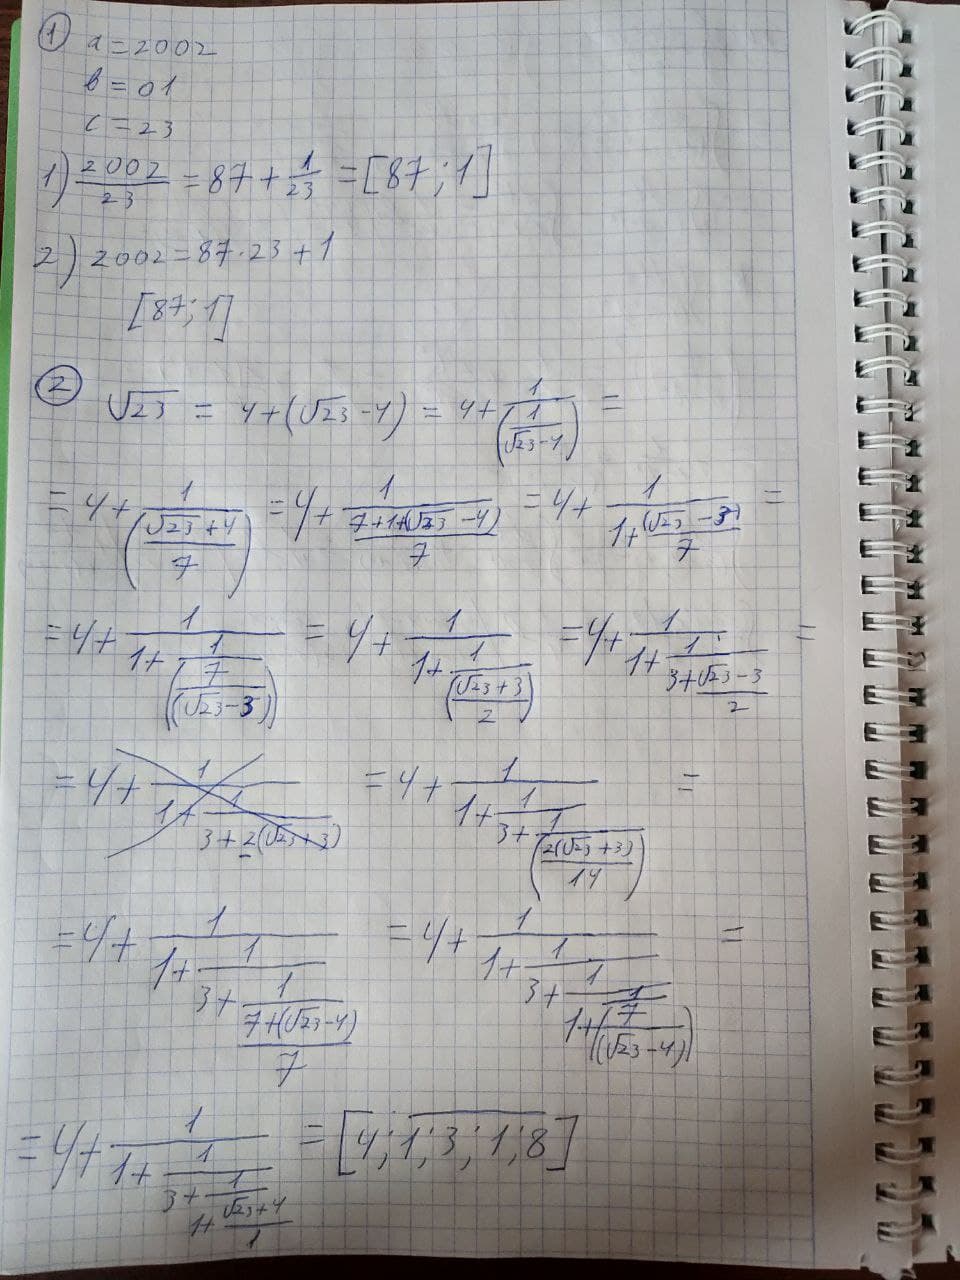 ① a = 2002
b = 01
c = 23
1) 2002/23 = 87 + 1/23 = [87; 1]
2) 2002 = 87 · 23 + 1
[87; 1]
② √23 = 4 + (√23 - 4) = 4 + 1/(1/(√23 - 4)) =
= 4 + 1/((√23 + 4)/7) = 4 + 1/((7 + 1 + (√23 - 4))/7) = 4 + 1/(1 + (√23 - 3)/7) =
= 4 + 1/(1 + 1/(7/(√23 - 3))) = 4 + 1/(1 + 1/((√23 + 3)/2)) = 4 + 1/(1 + 1/(3 + (√23 - 3)/2)) =
= 4 + 1/(1 + 1/(3 + 2(√23 + 3))) = 4 + 1/(1 + 1/(3 + 1/(2(√23 + 3)/14))) =
= 4 + 1/(1 + 1/(3 + 1/((7 + (√23 - 4))/7))) = 4 + 1/(1 + 1/(3 + 1/(1 + 1/(7/(√23 - 4))))) =
= 4 + 1/(1 + 1/(3 + 1/(1 + (√23 + 4)/1))) = [4; 1; 3; 1; 8]